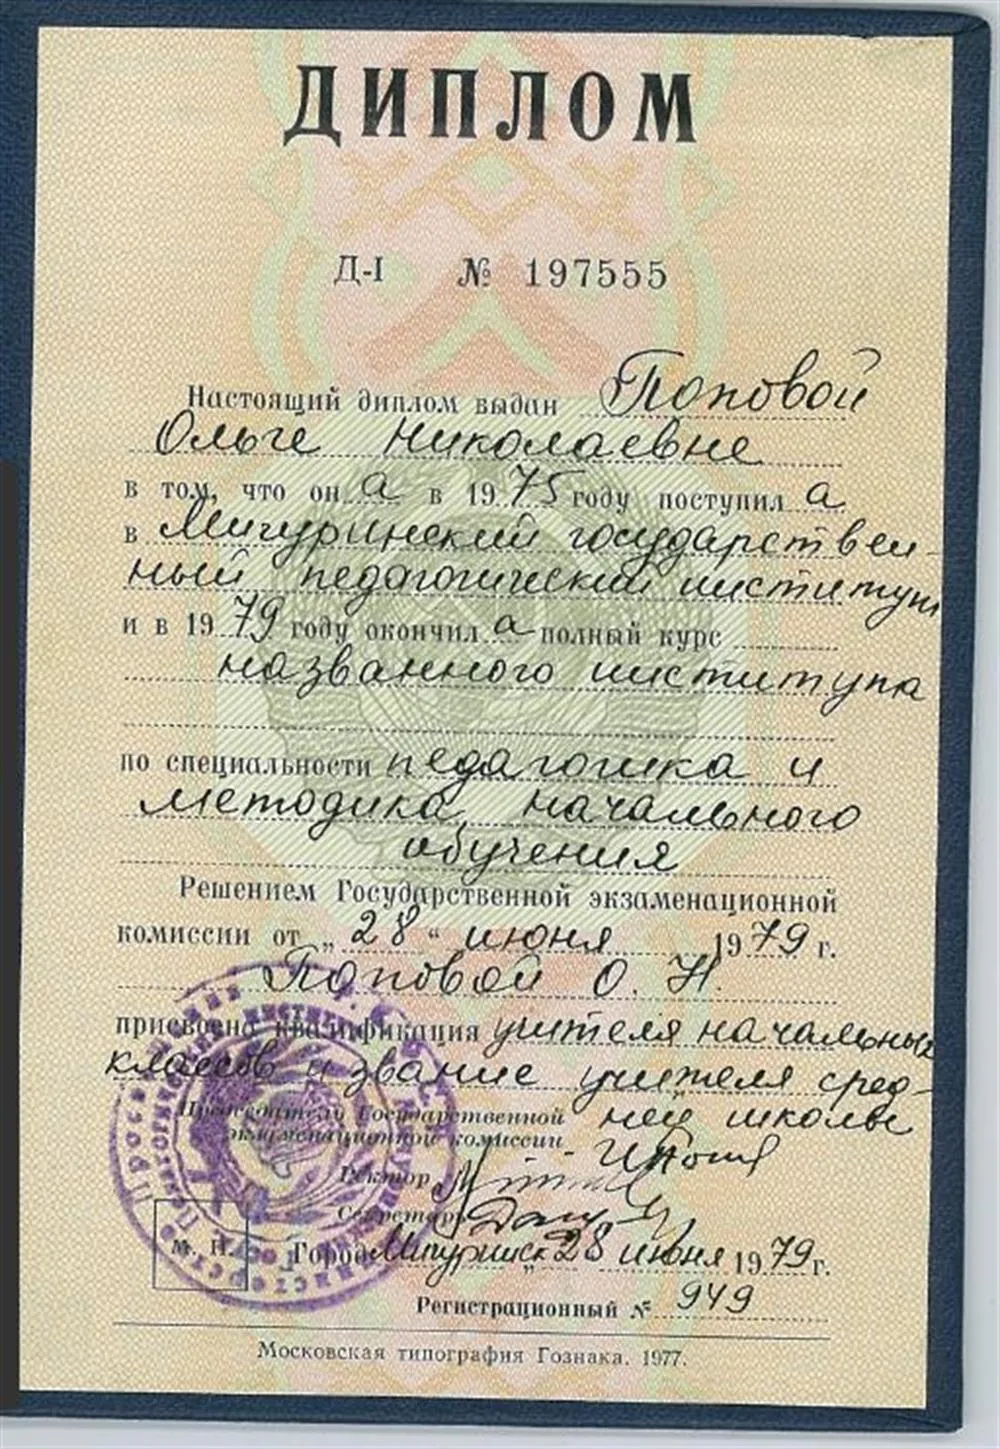 ДИПЛОМ
Д-I № 197555
Настоящий диплом выдан Поповой
Ольге Николаевне
в том, что он а в 1975 году поступил а
в Мичуринский государствен-
ный педагогический институт
и в 1979 году окончил а полный курс
названного института
по специальности педагогика и
методика начального
обучения
Решением Государственной экзаменационной
комиссии от „28“ июня 1979 г.
Поповой О. Н.
присвоена квалификация учителя начальных
классов и звание учителя сред-
Председатель Государственной ней школы
экзаменационной комиссии
Ректор
Секретарь
М. П. Город Мичуринск 28 июня 1979 г.
Регистрационный № 949
Московская типография Гознака. 1977.